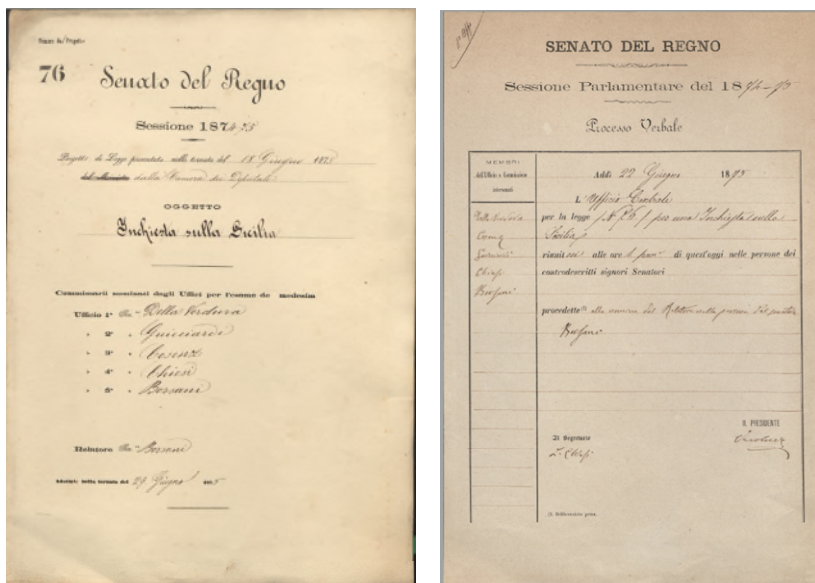 76
Senato del Regno
Sessione 1874-75
Progetto di Legge presentato nella tornata del 18 Giugno 1875
dalla Camera dei Deputati
OGGETTO
Inchiesta sulla Sicilia
Commissarii nominati dagli Uffici per l'esame de medesim
Ufficio 1° Sen. Della Verdura
» 2° » Guicciardi
» 3° » Cosenz
» 4° » Chiesi
» 5° » Borsani
Relatore Sen. Borsani
Adottato nella tornata del 29 Giugno 1875
SENATO DEL REGNO
Sessione Parlamentare del 1874-75
Processo Verbale
MEMBRI
dell'Ufficio o Commissione
intervenuti
Della Verdura
Cosenz
Guicciardi
Chiesi
Borsani
Addì 22 Giugno 1875
L'Ufficio Centrale
per la legge (N. 76) per una Inchiesta sulla
Sicilia
riunitosi alle ore 1 pom. di quest'oggi nelle persone dei
controdescritti signori Senatori
procedette (1) alla nomina del Relatore nella persona del senatore
Borsani
Il Segretario
L. Chiesi
IL PRESIDENTE